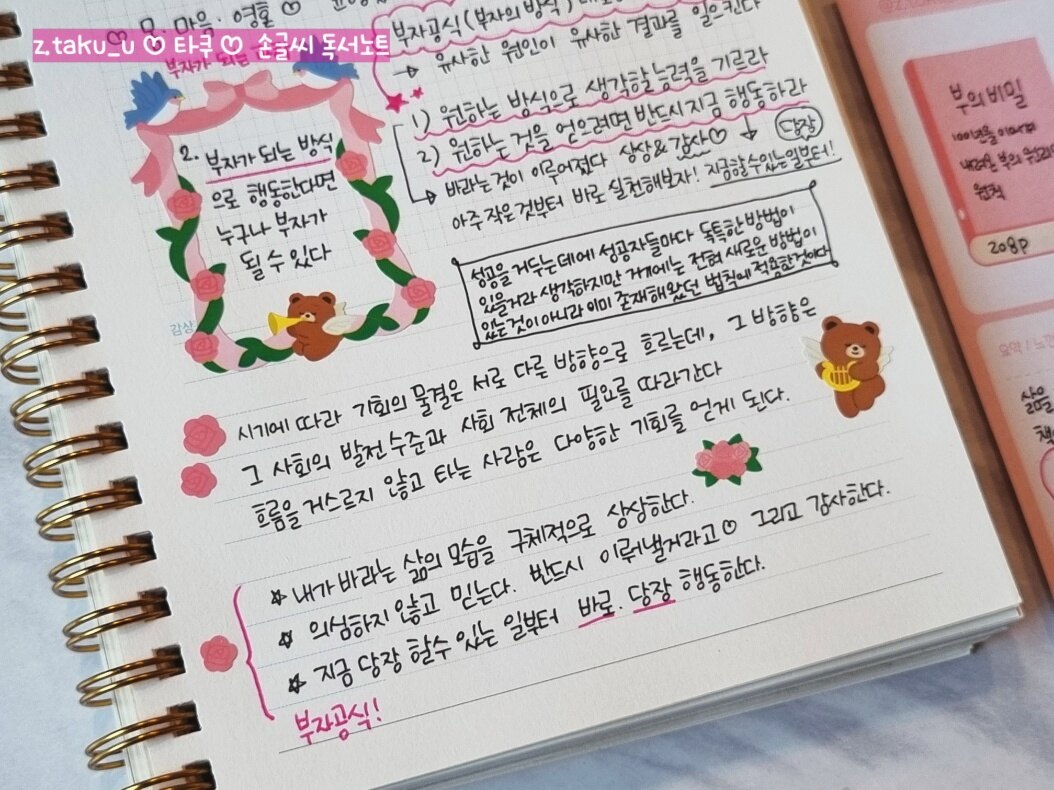 z.taku_u ♡ 타쿠♡ 손글씨 독서노트
♡ 몸·마음·영혼 ♡
부자가 되는
부자공식(부자의 방식)
→ 유사한 원인이 유사한 결과를 일으킨다
1) 원하는 방식으로 생각할 능력을 기르라
2) 원하는 것을 얻으려면 반드시 지금 행동하라
→ 바라는 것이 이루어졌다 상상&감사♡ 당장
아주 작은것부터 바로 실천해보자! 지금할수있는일부터!
2. 부자가 되는 방식
으로 행동한다면
누구나 부자가
될 수 있다
성공을 거두는데에 성공자들마다 독특한 방법이
있을거라 생각하지만 거기에는 전혀 새로운 방법이
있는것이 아니라 이미 존재해왔던 법칙에 적용한것이다
감상
시기에 따라 기회의 물결은 서로 다른 방향으로 흐르는데, 그 방향은
그 사회의 발전 수준과 사회 전체의 필요를 따라간다
흐름을 거스르지 않고 타는 사람은 다양한 기회를 얻게 된다.
☆ 내가 바라는 삶의 모습을 구체적으로 상상한다.
☆ 의심하지 않고 믿는다. 반드시 이뤄낼거라고♡ 그리고 감사한다.
☆ 지금 당장 할수 있는 일부터 바로. 당장 행동한다.
부자공식!
부의 비밀
원칙
208p